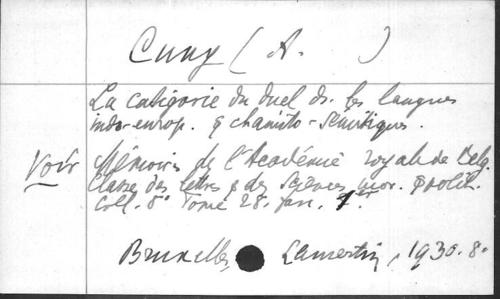 Cuny (A. )
La catégorie du duel ds. les langues
indo-europ. & chamito-sémitiques.
Voir Mémoires de l'Académie royale de Belg.
Classe des lettres & des Sciences mor. & polit.
Coll. 8° Tome 28. fasc. 1er
Bruxelles, Lamertin, 1930. 8°